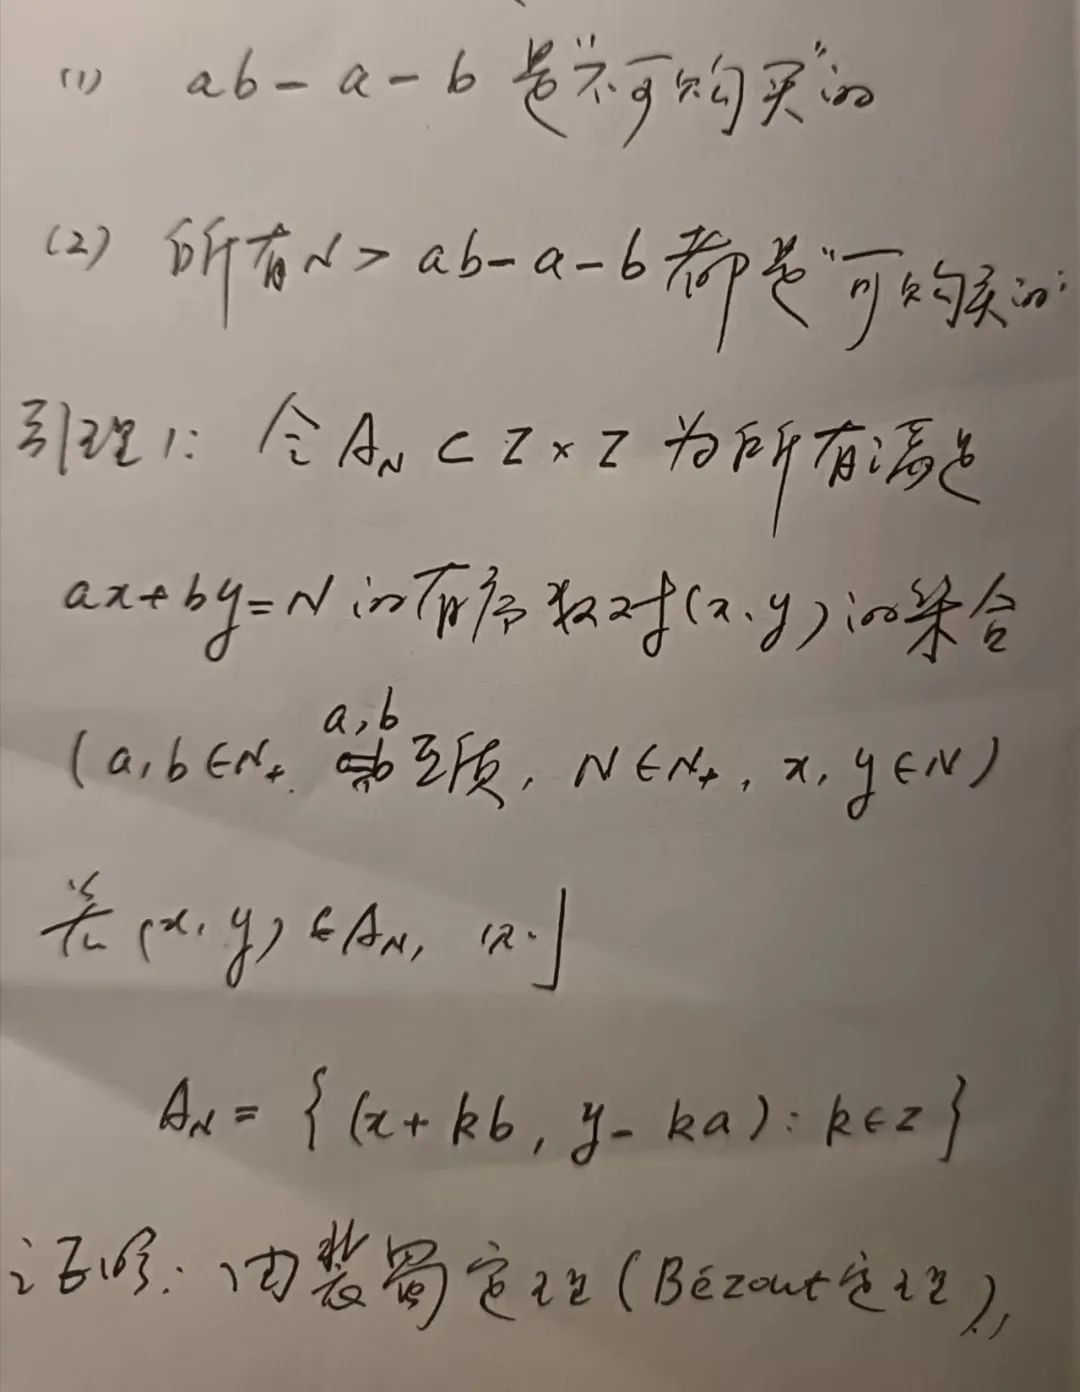 (1) ab-a-b 是“不可购买”的
(2) 所有N>ab-a-b都是“可购买的”
引理1: 令A_N⊂Z×Z为所有满足
ax+by=N的有序数对(x,y)的集合
(a,b∈N₊ a,b互质, N∈N₊, x,y∈N)
若(x,y)∈A_N, 则
A_N={(x+kb,y-ka):k∈Z}
证明: 由裴蜀定理(Bézout定理),